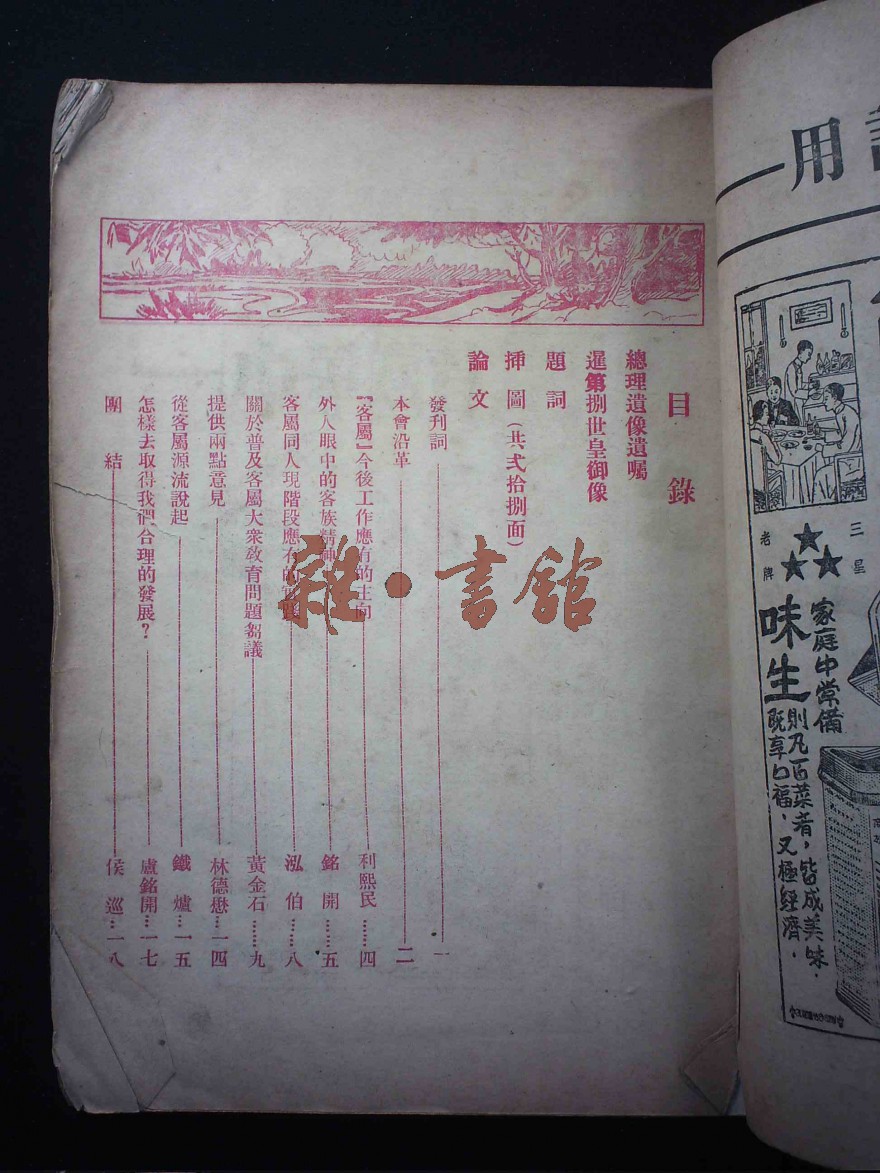 目錄
總理遺像遺囑
暹第捌世皇御像
題詞
挿圖（共弍拾捌面）
論文
發刊詞……一
本會沿革……二
『客屬』今後工作應有的主向……利熙民……四
外人眼中的客族精神……銘開……五
客屬同人現階段應有的實踐……泓伯……八
關於普及客屬大衆敎育問題芻議……黃金石……九
提供兩點意見……林德懋……一四
從客屬源流說起……鐵爐……一五
怎樣去取得我們合理的發展？……盧銘開……一七
團結……侯巡……一八
雜·書館
用
三星
老牌
味生
家庭中常備
則凡百菜者，皆成美味，
既享口福，又極經濟，